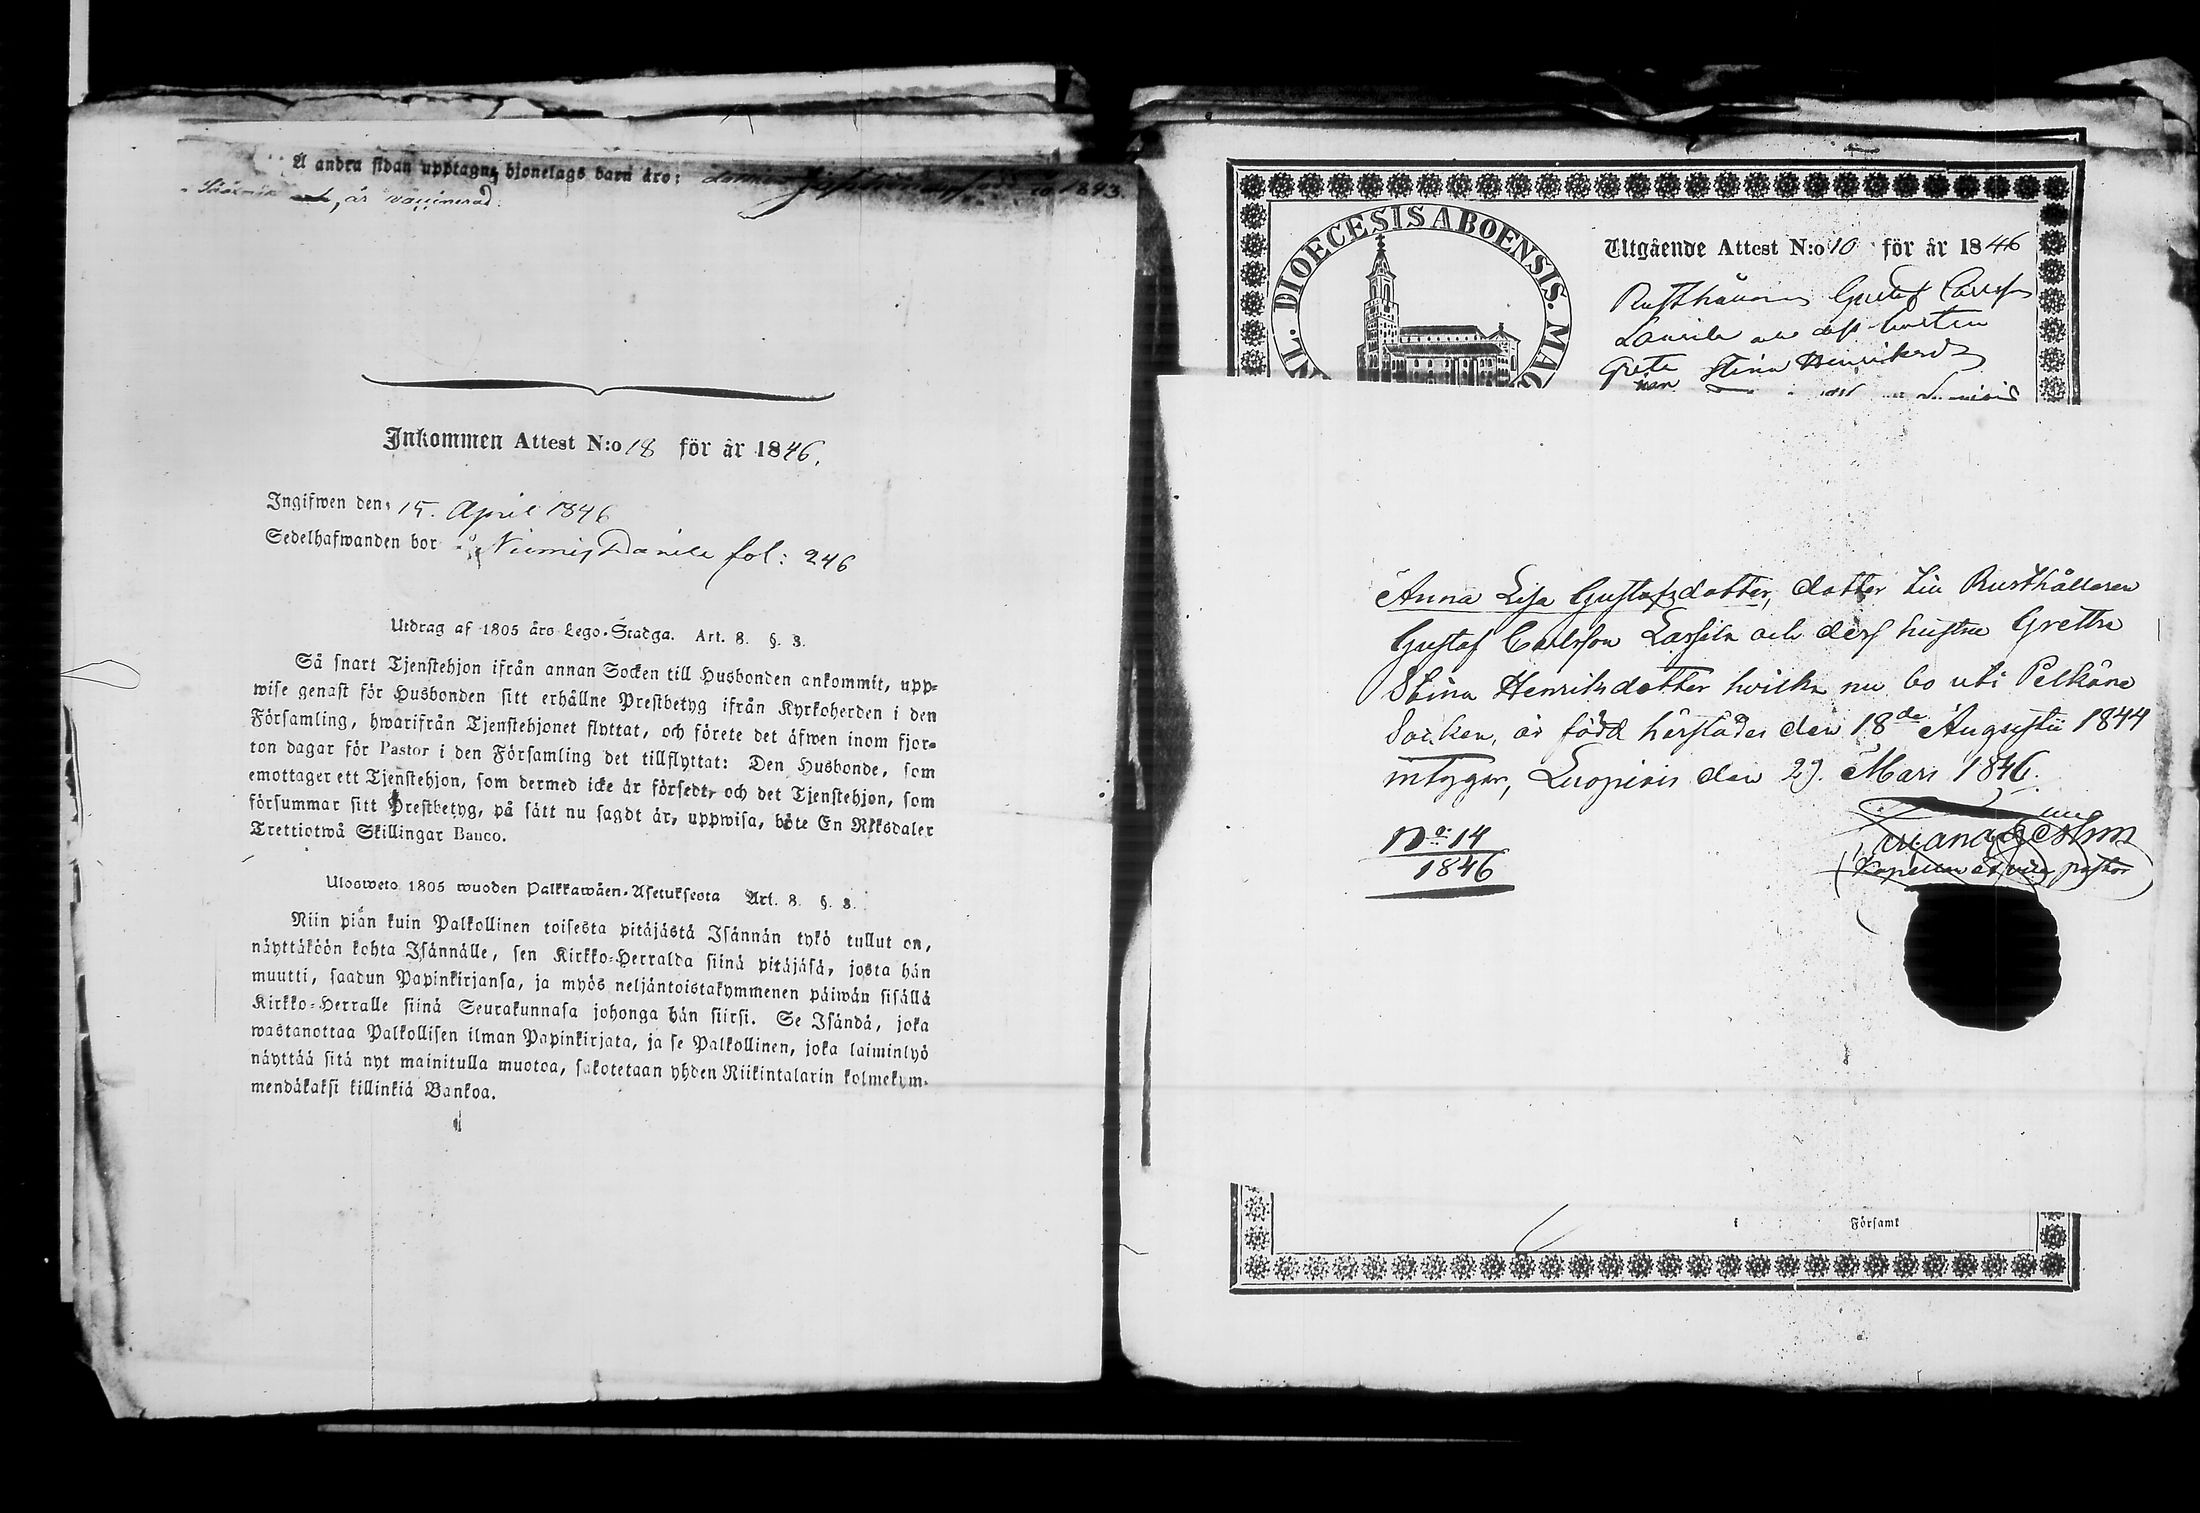 Å andra sidan upptagne hjonelags barn äro: 1843.
är vaccinerad.
Inkommen Attest N:o 18 för år 1846.
Ingifwen den: 15. April 1846
Sedelhafwanden bor på Niemis Danila fol: 246
Utdrag af 1805 års Lego-Stadga. Art. 8. §. 3.
Så snart Tjenstehjon ifrån annan Socken till Husbonden ankommit, upp-
wise genast för Husbonden sitt erhållne Prestbetyg ifrån Kyrkoherden i den
Församling, hwarifrån Tjenstehjonet flyttat, och förete det äfwen inom fjor-
ton dagar för Pastor i den Församling det tillflyttat: Den Husbonde, som
emottager ett Tjenstehjon, som dermed icke är försedt, och det Tjenstehjon, som
försummar sitt Prestbetyg, på sätt nu sagdt är, uppwisa, böte En Riksdaler
Trettiotwå Skillingar Banco.
Ulosweto 1805 wuoden Palkkawäen-Asetuksesta Art. 8. §. 3.
Niin piän kuin Palkollinen toisesta pitäjästä Isännän tykö tullut on,
näyttäköön kohta Isännälle, sen Kirkko-Herralda siinä pitäjäsä, josta hän
muutti, saadun Papinkirjansa, ja myös neljäntoistakymmenen päiwän sisällä
Kirkko-Herralle siinä Seurakunnasa johonga hän siirsi. Se Isändä, joka
wastanottaa Palkollisen ilman Papinkirjata, ja se Palkollinen, joka laiminlyö
näyttää sitä nyt mainitulla muotoa, sakotetaan yhden Riikintalarin kolmekym-
mendäkaksi killinkiä Bankoa.
DIOECESIS ABOENSIS. MAG
Utgående Attest N:o 10 för år 1846
Rusthållaren Gustaf Carlsson
Laurila och dess hustru
Greta Stina Henriksd
Anna Lisa Gustafsdotter, dotter till Rusthållaren
Gustaf Carlsson Lassila och dess hustru Gretha
Stina Henriksdotter hvilka nu bo uti Pelkäne
Socken, är född härstädes den 18de Augustii 1844
intygar, Luopiois den 29. Mars 1846.
No: 14
1846
Kapellan et vice pastor
i Församl